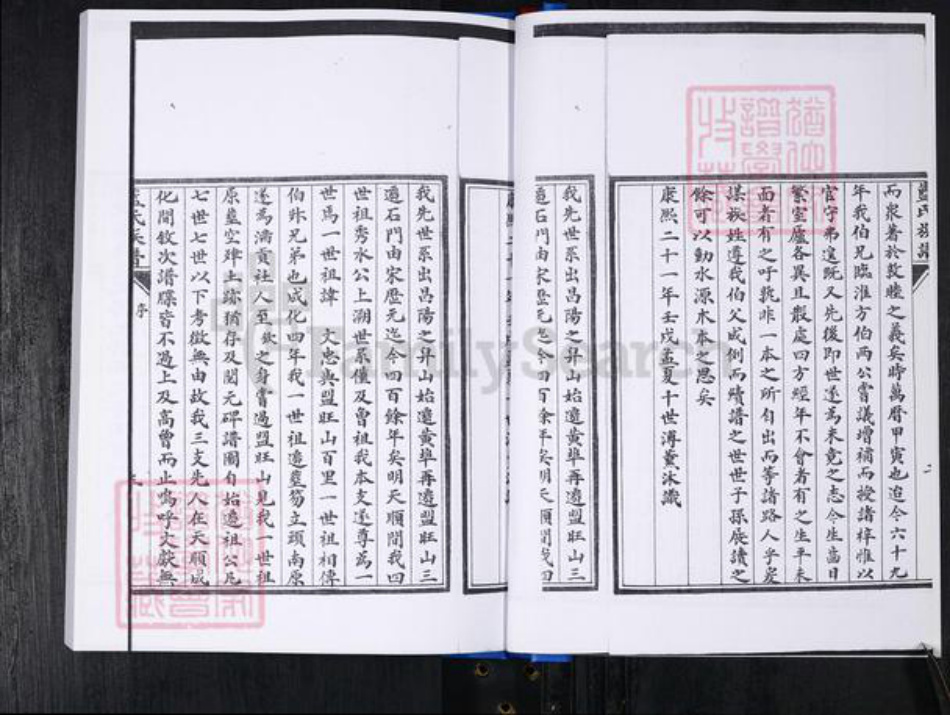 而泉著於敦睦之義矣時萬曆甲寅也迨今六十九
年我伯兄臨淮方伯兩公嘗議增補而授諸梓惟以
官守弗遑既又先後即世遂為未竟之志今生齒日
繁室廬各異且散處四方經年不會者有之生平未
面者有之呼孰非一本之所自出而等諸路人乎爰
謀族姓遵我伯父成例而續譜之世世子孫展讀之
餘可以動水源木本之思矣
康熙二十一年壬戌孟夏十世溥薰沐識
我先世系出昌陽之昇山始遷黃埠再遷盟旺山三
遷石門由宋歷元迄今四百餘年矣明天順間我四
我先世系出昌陽之昇山始遷黃埠再遷盟旺山三
遷石門由宋歷元迄今四百餘年矣明天順間我四
世祖秀水公上溯世系僅及曾祖我本支遂尊為一
世焉一世祖諱 文忠與盟旺山百里一世祖相傳
伯叔兄弟也成化四年我一世祖遷塋茐立頭南原
遂為濤貢社人至欽之身嘗過盟旺山見我一世祖
原墓空碑上跡猶存及閱元碑譜圖自始遷祖公凡
七世七世以下考徵無由故我三支先人在天順成
化間敘次譜牒皆不過上及高曾而止嗚呼文獻無
序
FamilySearch